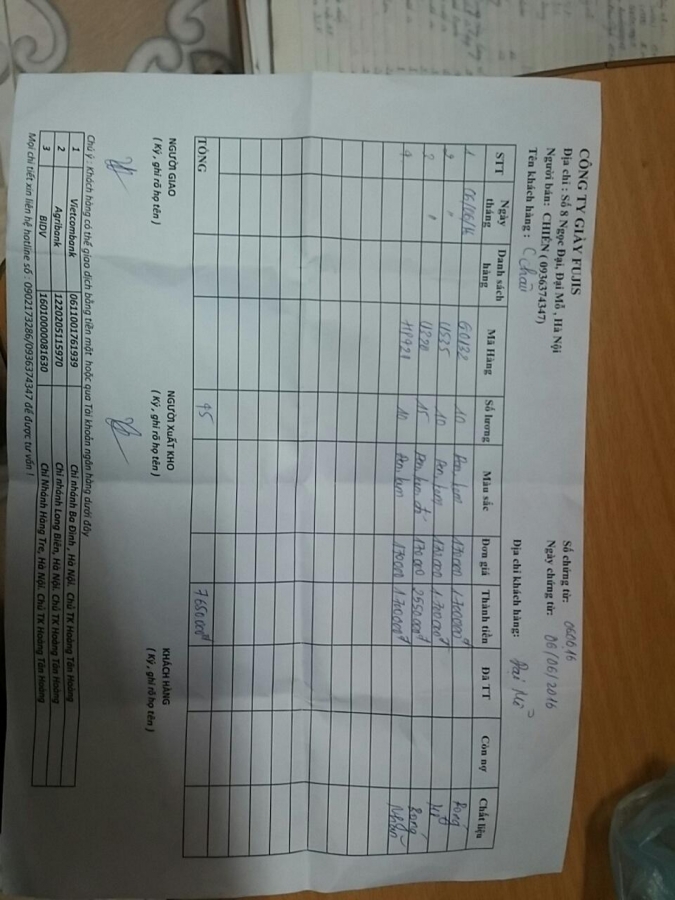 CÔNG TY GIẦY FUJIS
Địa chỉ : Số 8 Ngọc Đại, Đại Mỗ , Hà Nội
Số chứng từ: 060616
Người bán: CHIẾN ( 0936374347)
Ngày chứng từ: 06/06/2016
Tên khách hàng : C Châu
Địa chỉ khách hàng: Đại Mỗ
STT Ngày tháng Danh sách hàng Mã Hàng Số lượng Màu sắc Đơn giá Thành tiền Đã TT Còn nợ Chất liệu
1 06/06/16 G0132 10 Đen, kem 170 000 1.700 000đ Bóng
2 " U535 10 Đen, kem 170 000 1.700 000đ
3 " U320 15 Đen, kem 170 000 2550 000đ Bóng
4 HP921 10 Đen, kem 170 000 1.700 000đ Nhăn
TỔNG 45 7650 000đ
NGƯỜI GIAO
( Ký , ghi rõ họ tên )
NGƯỜI XUẤT KHO
( Ký , ghi rõ họ tên )
KHÁCH HÀNG
( Ký , ghi rõ họ tên )
Chú ý : Khách hàng có thể giao dịch bằng tiền mặt hoặc qua Tài khoản ngân hàng dưới đây
1 Vietcombank 0611001761939 Chi nhánh Ba Đình , Hà Nội. Chủ TK Hoàng Tấn Hoàng
2 Agribank 1220205115970 Chi nhánh Long Biên, Hà Nội. Chủ TK Hoàng Tấn Hoàng
3 BIDV 16010000081630 Chi Nhánh Hàng Tre, Hà Nội. Chủ TK Hoàng Tấn Hoàng
Mọi chi tiết xin liên hệ hotline số : 0902173286/0936374347 để được tư vấn !